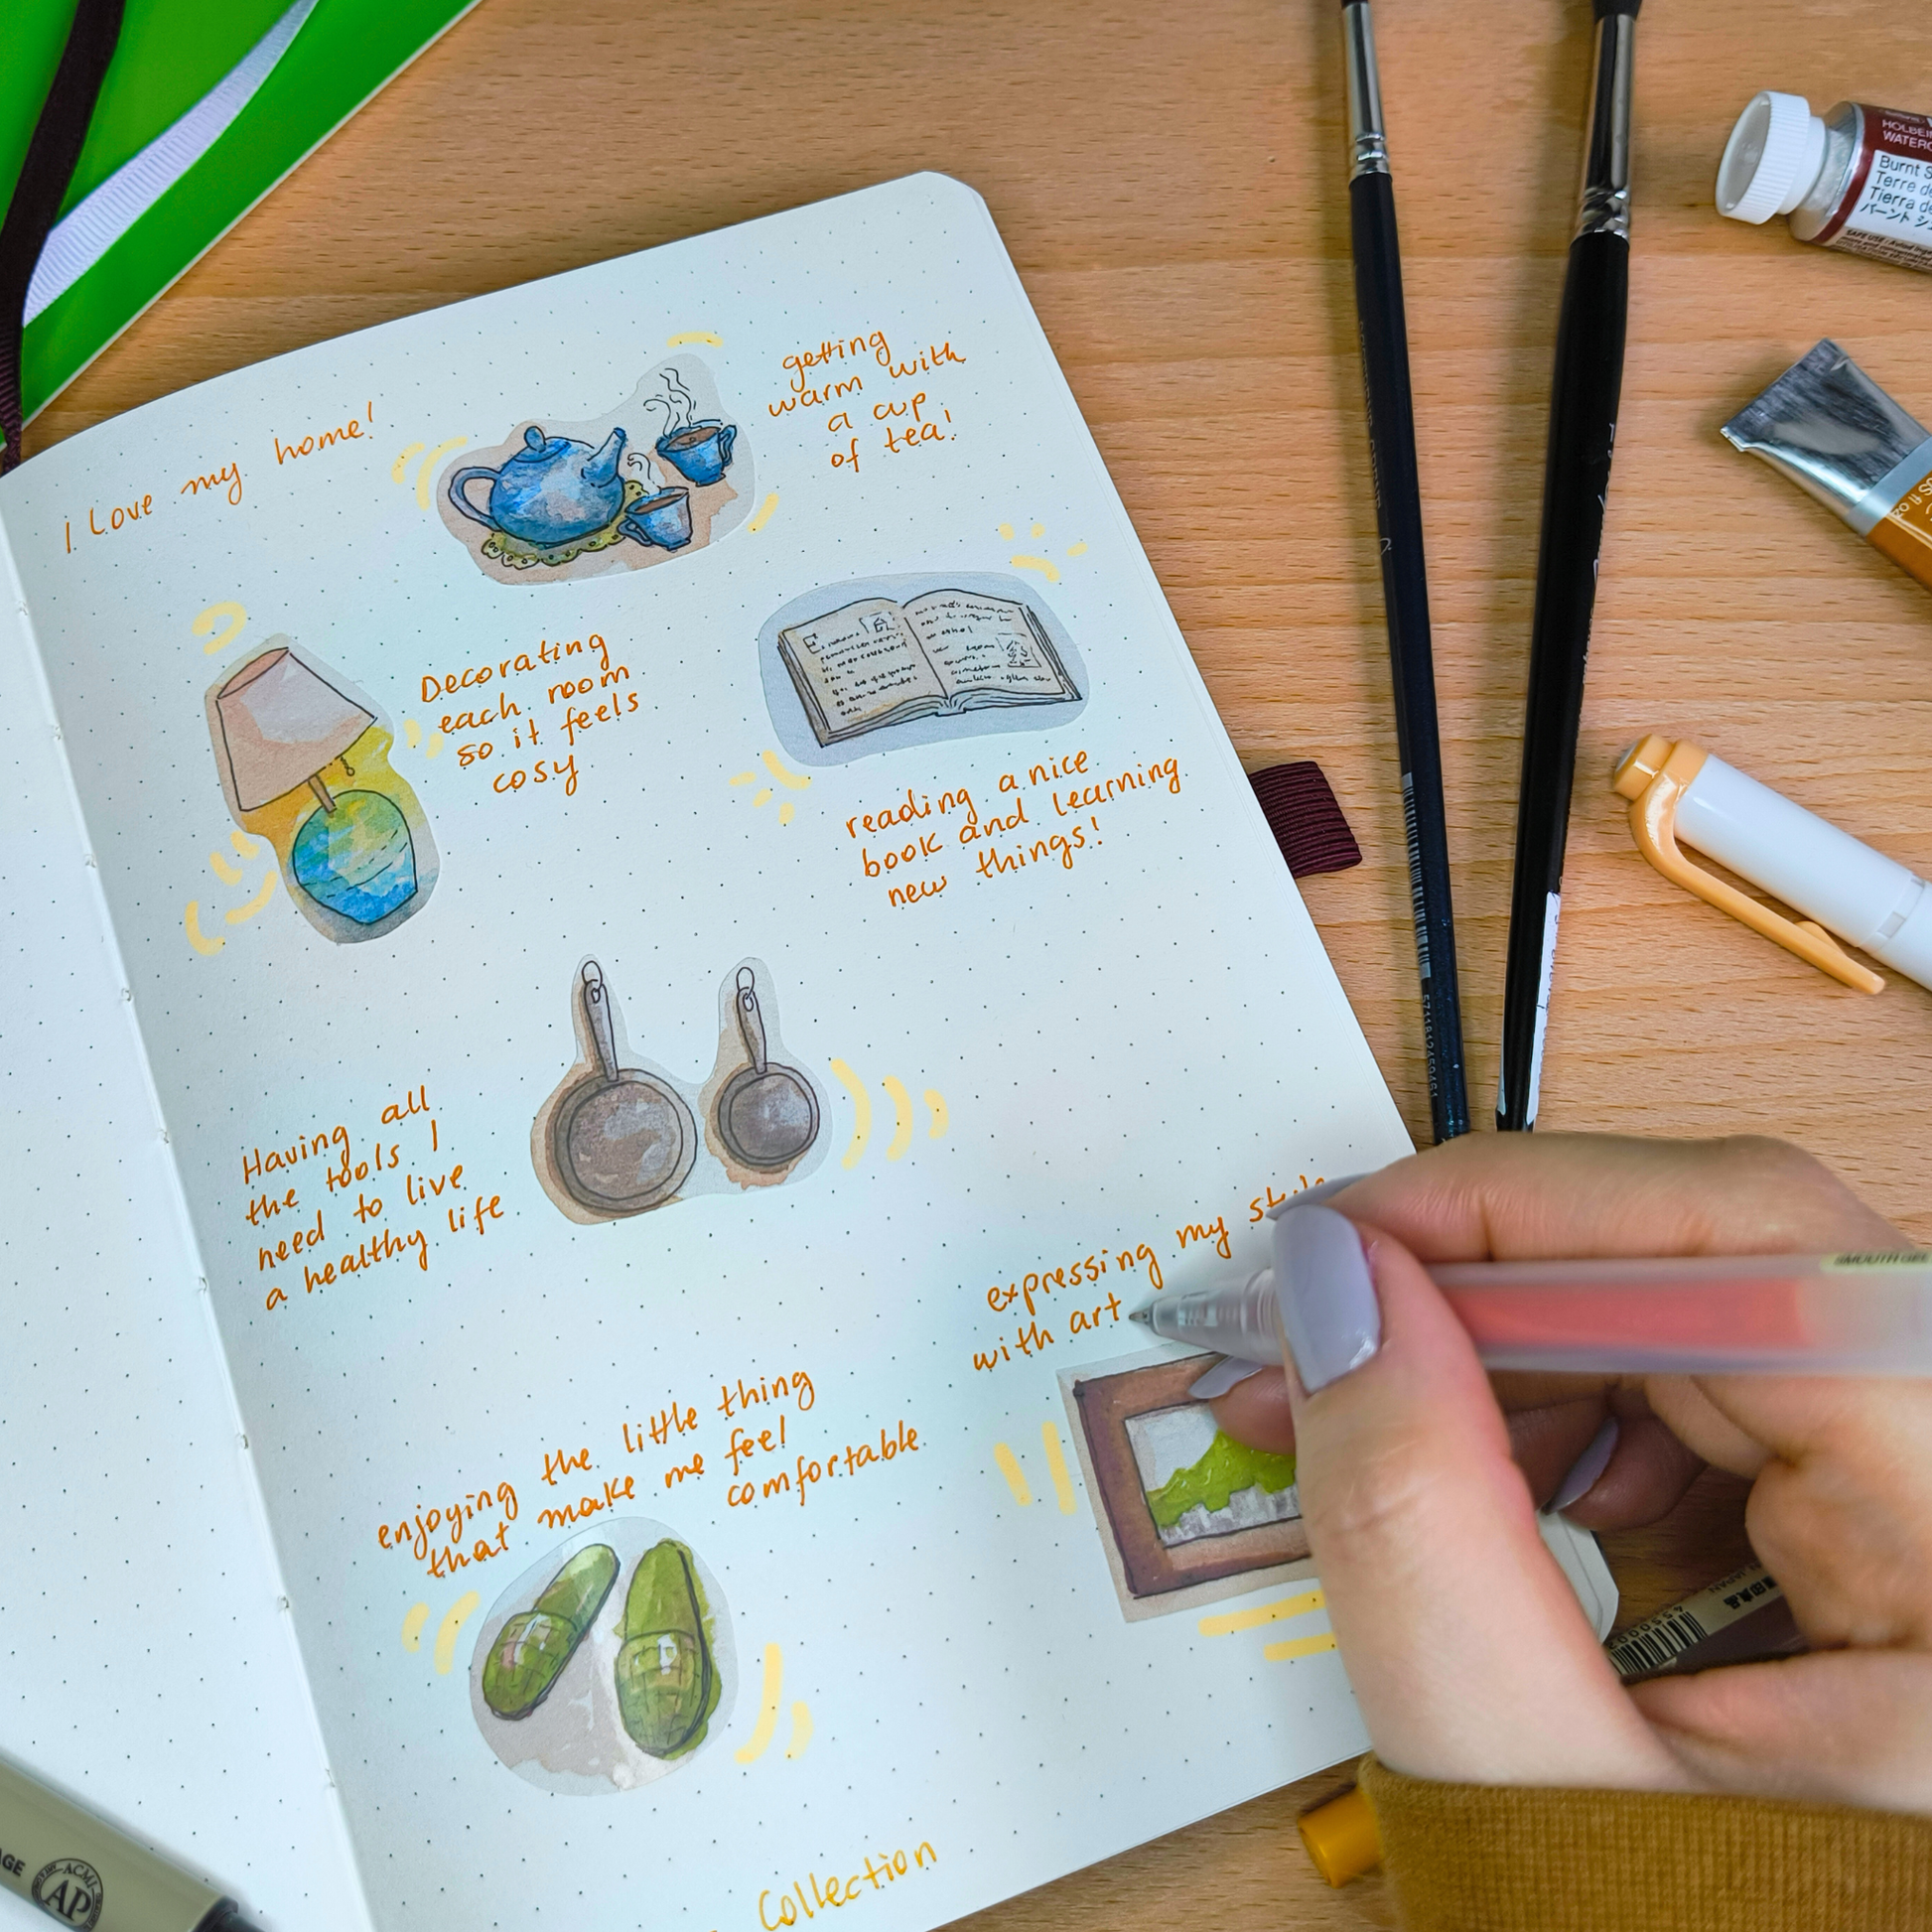 I love my home!
getting
warm with
a cup
of tea!
Decorating
each room
so it feels
cosy
reading a nice
book and learning
new things!
Having all
the tools I
need to live
a healthy life
expressing my style
with art
enjoying the little thing
that make me feel
comfortable
Collection
HOLBEIN
Burnt
Terre de
Tierra de
バーント
SMOOTH GEL
ACMI
AP
5711812459461